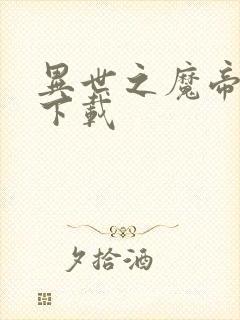 異世之魔帝
下載
夕拾酒